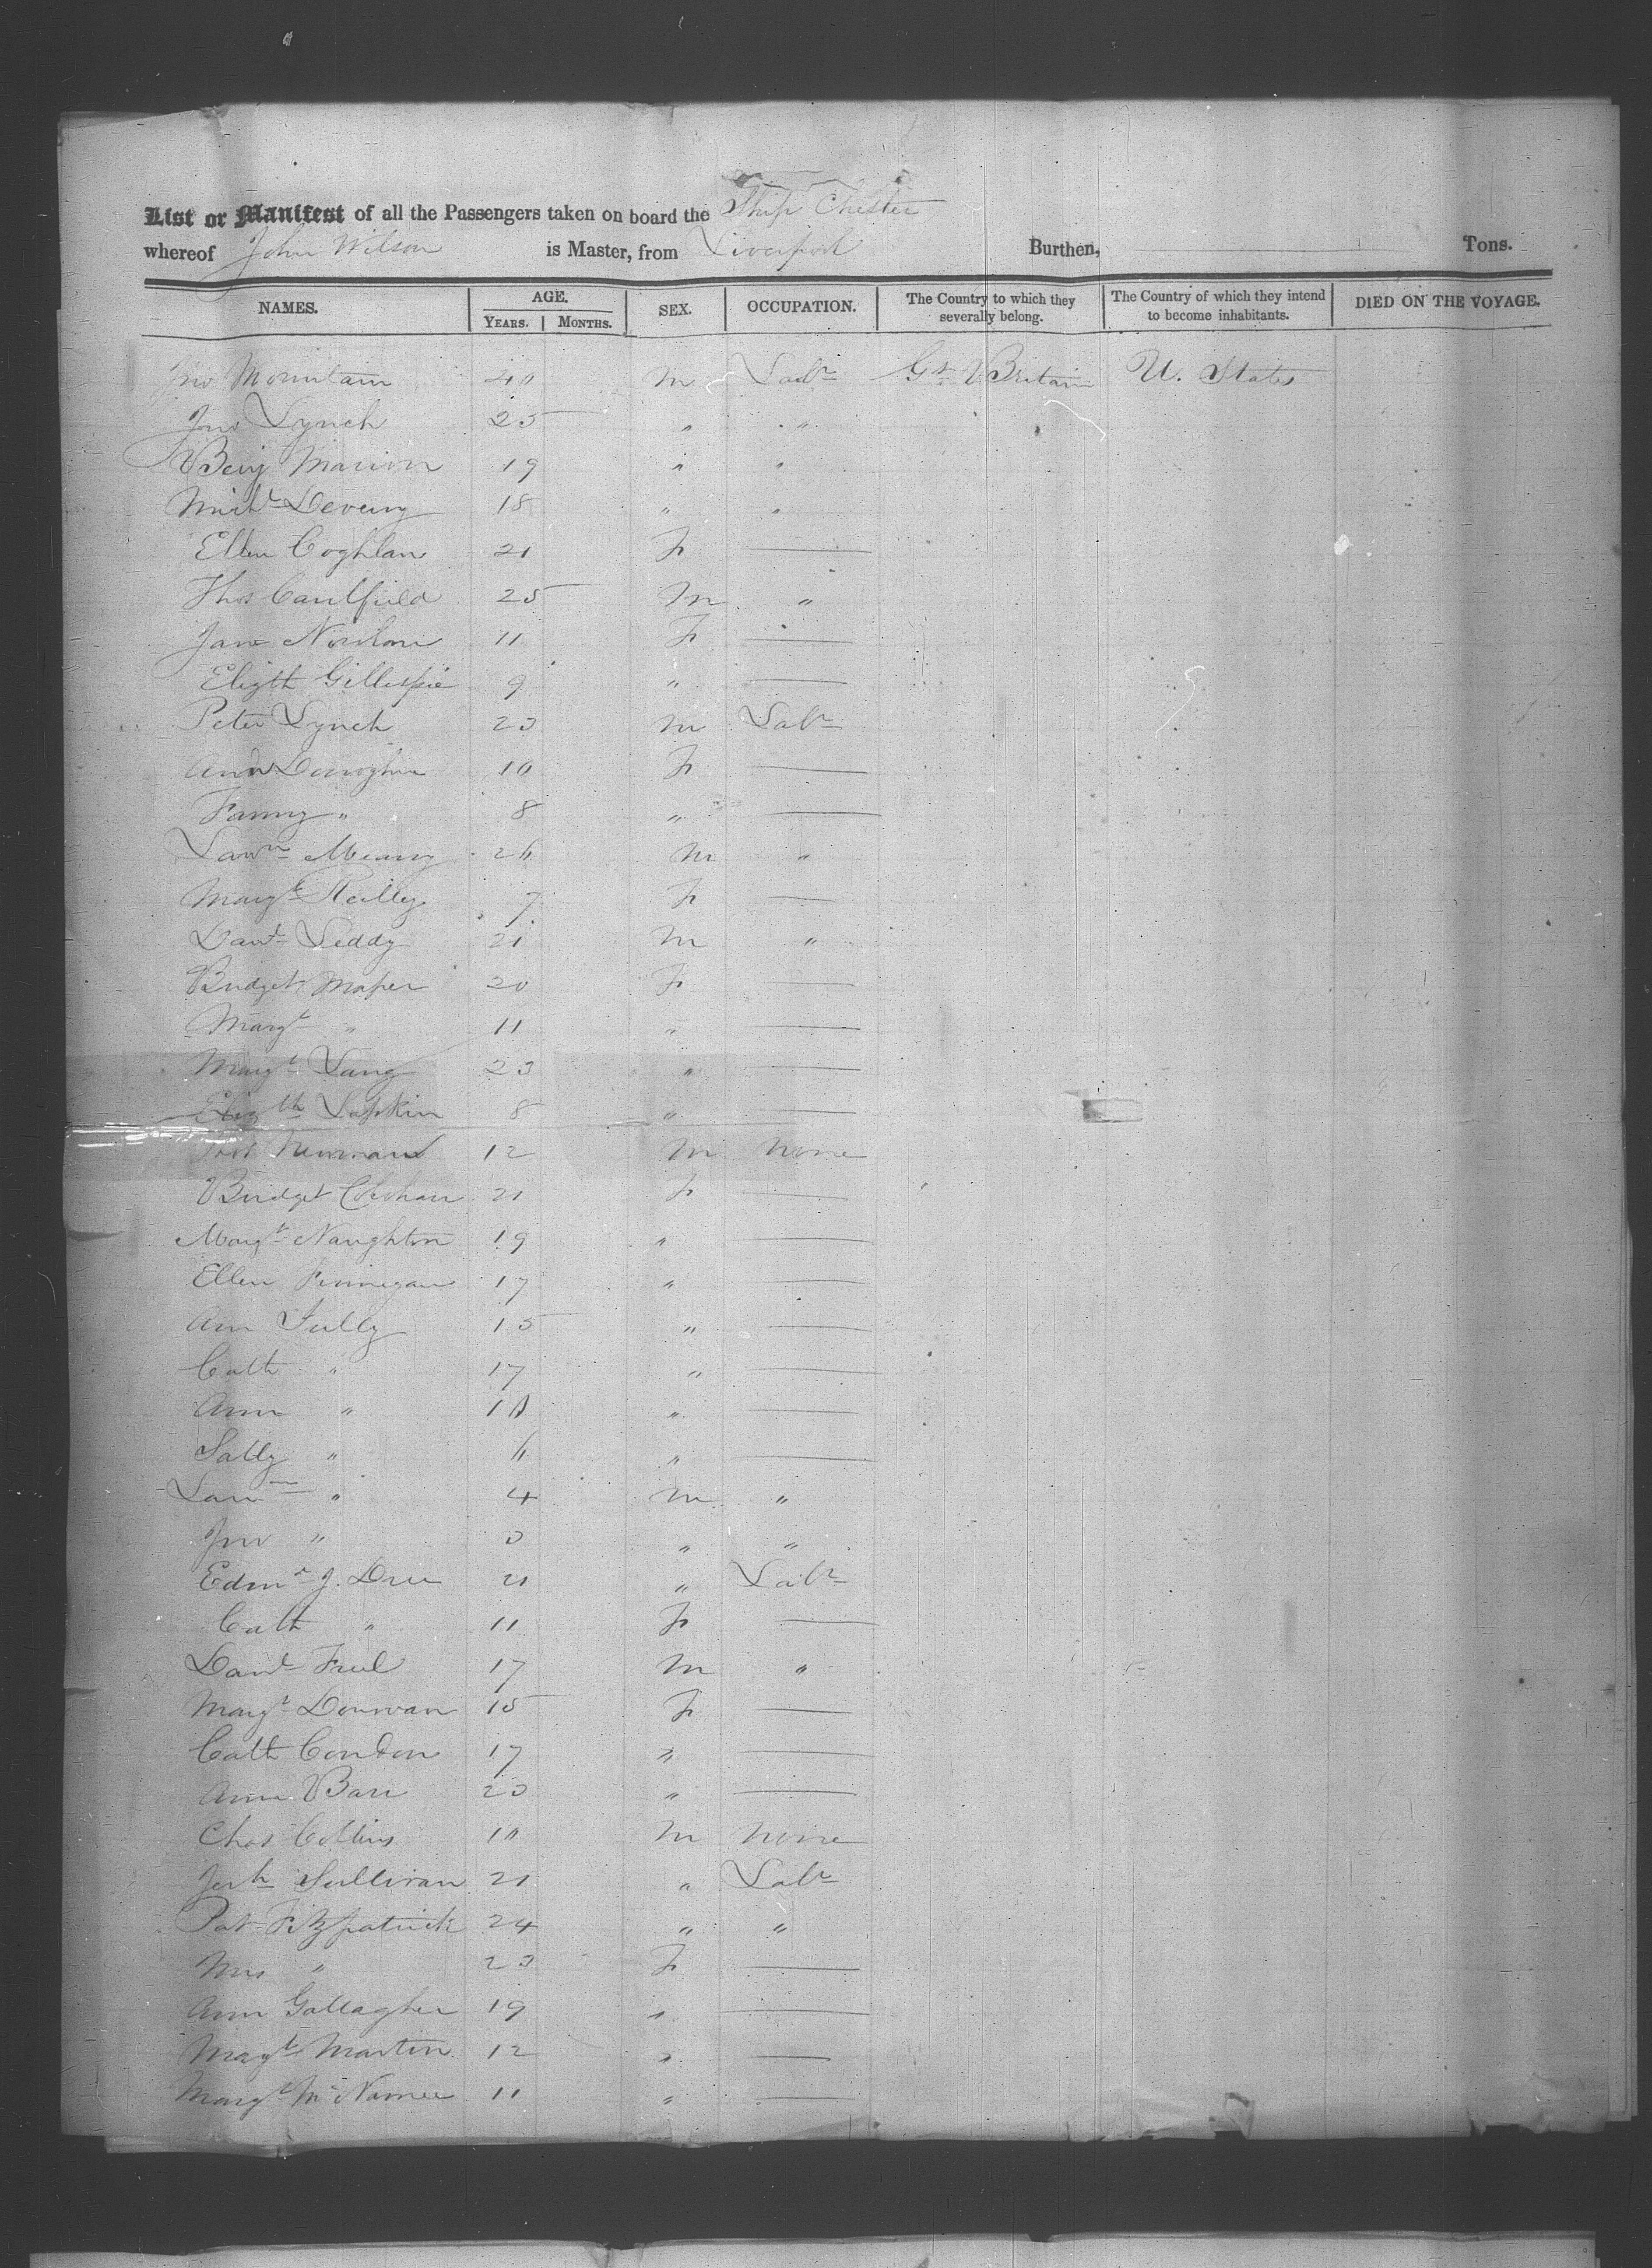 List or Manifest of all the Passengers taken on board the Ship Chester
whereof John Wilson is Master, from Liverpool Burthen, Tons.
NAMES. AGE. SEX. OCCUPATION. The Country to which they severally belong. The Country of which they intend to become inhabitants. DIED ON THE VOYAGE.
YEARS. MONTHS.
Jno Mountain 40 M Labr Gt Britain U. States
Jno Lynch 25 " "
Benj Marion 19 " "
Michl 18 " "
Ellen Coghlan 21 F —
Thos Caulfield 25 M "
Jane 11 F —
Elizth Gillespie 9 " —
Peter Lynch 23 M Labr
Ann Donoghue 10 F —
Fanny " 8 " —
Lawre 26 M "
Margt Reilly 7 F —
Danl Leddy 21 M "
Bridget 20 F —
Margt " 11 " —
Margt Lang 23 " —
Elizth Larkin 8 " —
Newman 12 M None
Bridget 21 F —
Margt Naughton 19 " —
Ellen Finnegan 17 " —
Ann Tully 15 " —
Cath " 17 " —
Ann " 10 " —
Sally " 6 " —
Lawre " 4 M "
Jno " 3 " "
Edmd J. Dree 21 " Labr
Cath " 11 F —
Danl Freel 17 M "
Margt Donovan 15 F —
Cath Condon 17 " —
Ann Barr 23 " —
Chas Collins 10 M None
Jerh Sullivan 21 " Labr
Pat Fitzpatrick 24 " "
Mrs " 23 F —
Ann Gallagher 19 " —
Magt Martin 12 " —
Margt McNamee 11 " —